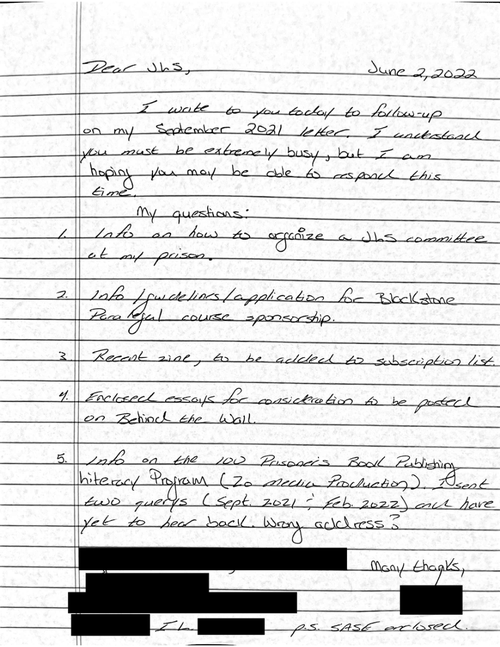 Dear JLS, June 2, 2022
I write to you today to follow-up
on my September 2021 letter. I understand
you must be extremely busy, but I am
hoping you may be able to respond this
time.
My questions:
1. Info on how to organize a JLS committee
at my prison.
2. Info/guidelines/application for Blackstone
Paralegal course sponsorship.
3. Recent zine, to be added to subscription list.
4. Enclosed essays for consideration to be posted
on Behind the Wall.
5. Info on the 100 Prisoner's Book Publishing
Literacy Program (Zo Media Production). I sent
two querys (Sept. 2021 ; Feb. 2022) and have
yet to hear back. Wrong address?
Many thanks,
IL p.s. SASE enclosed.